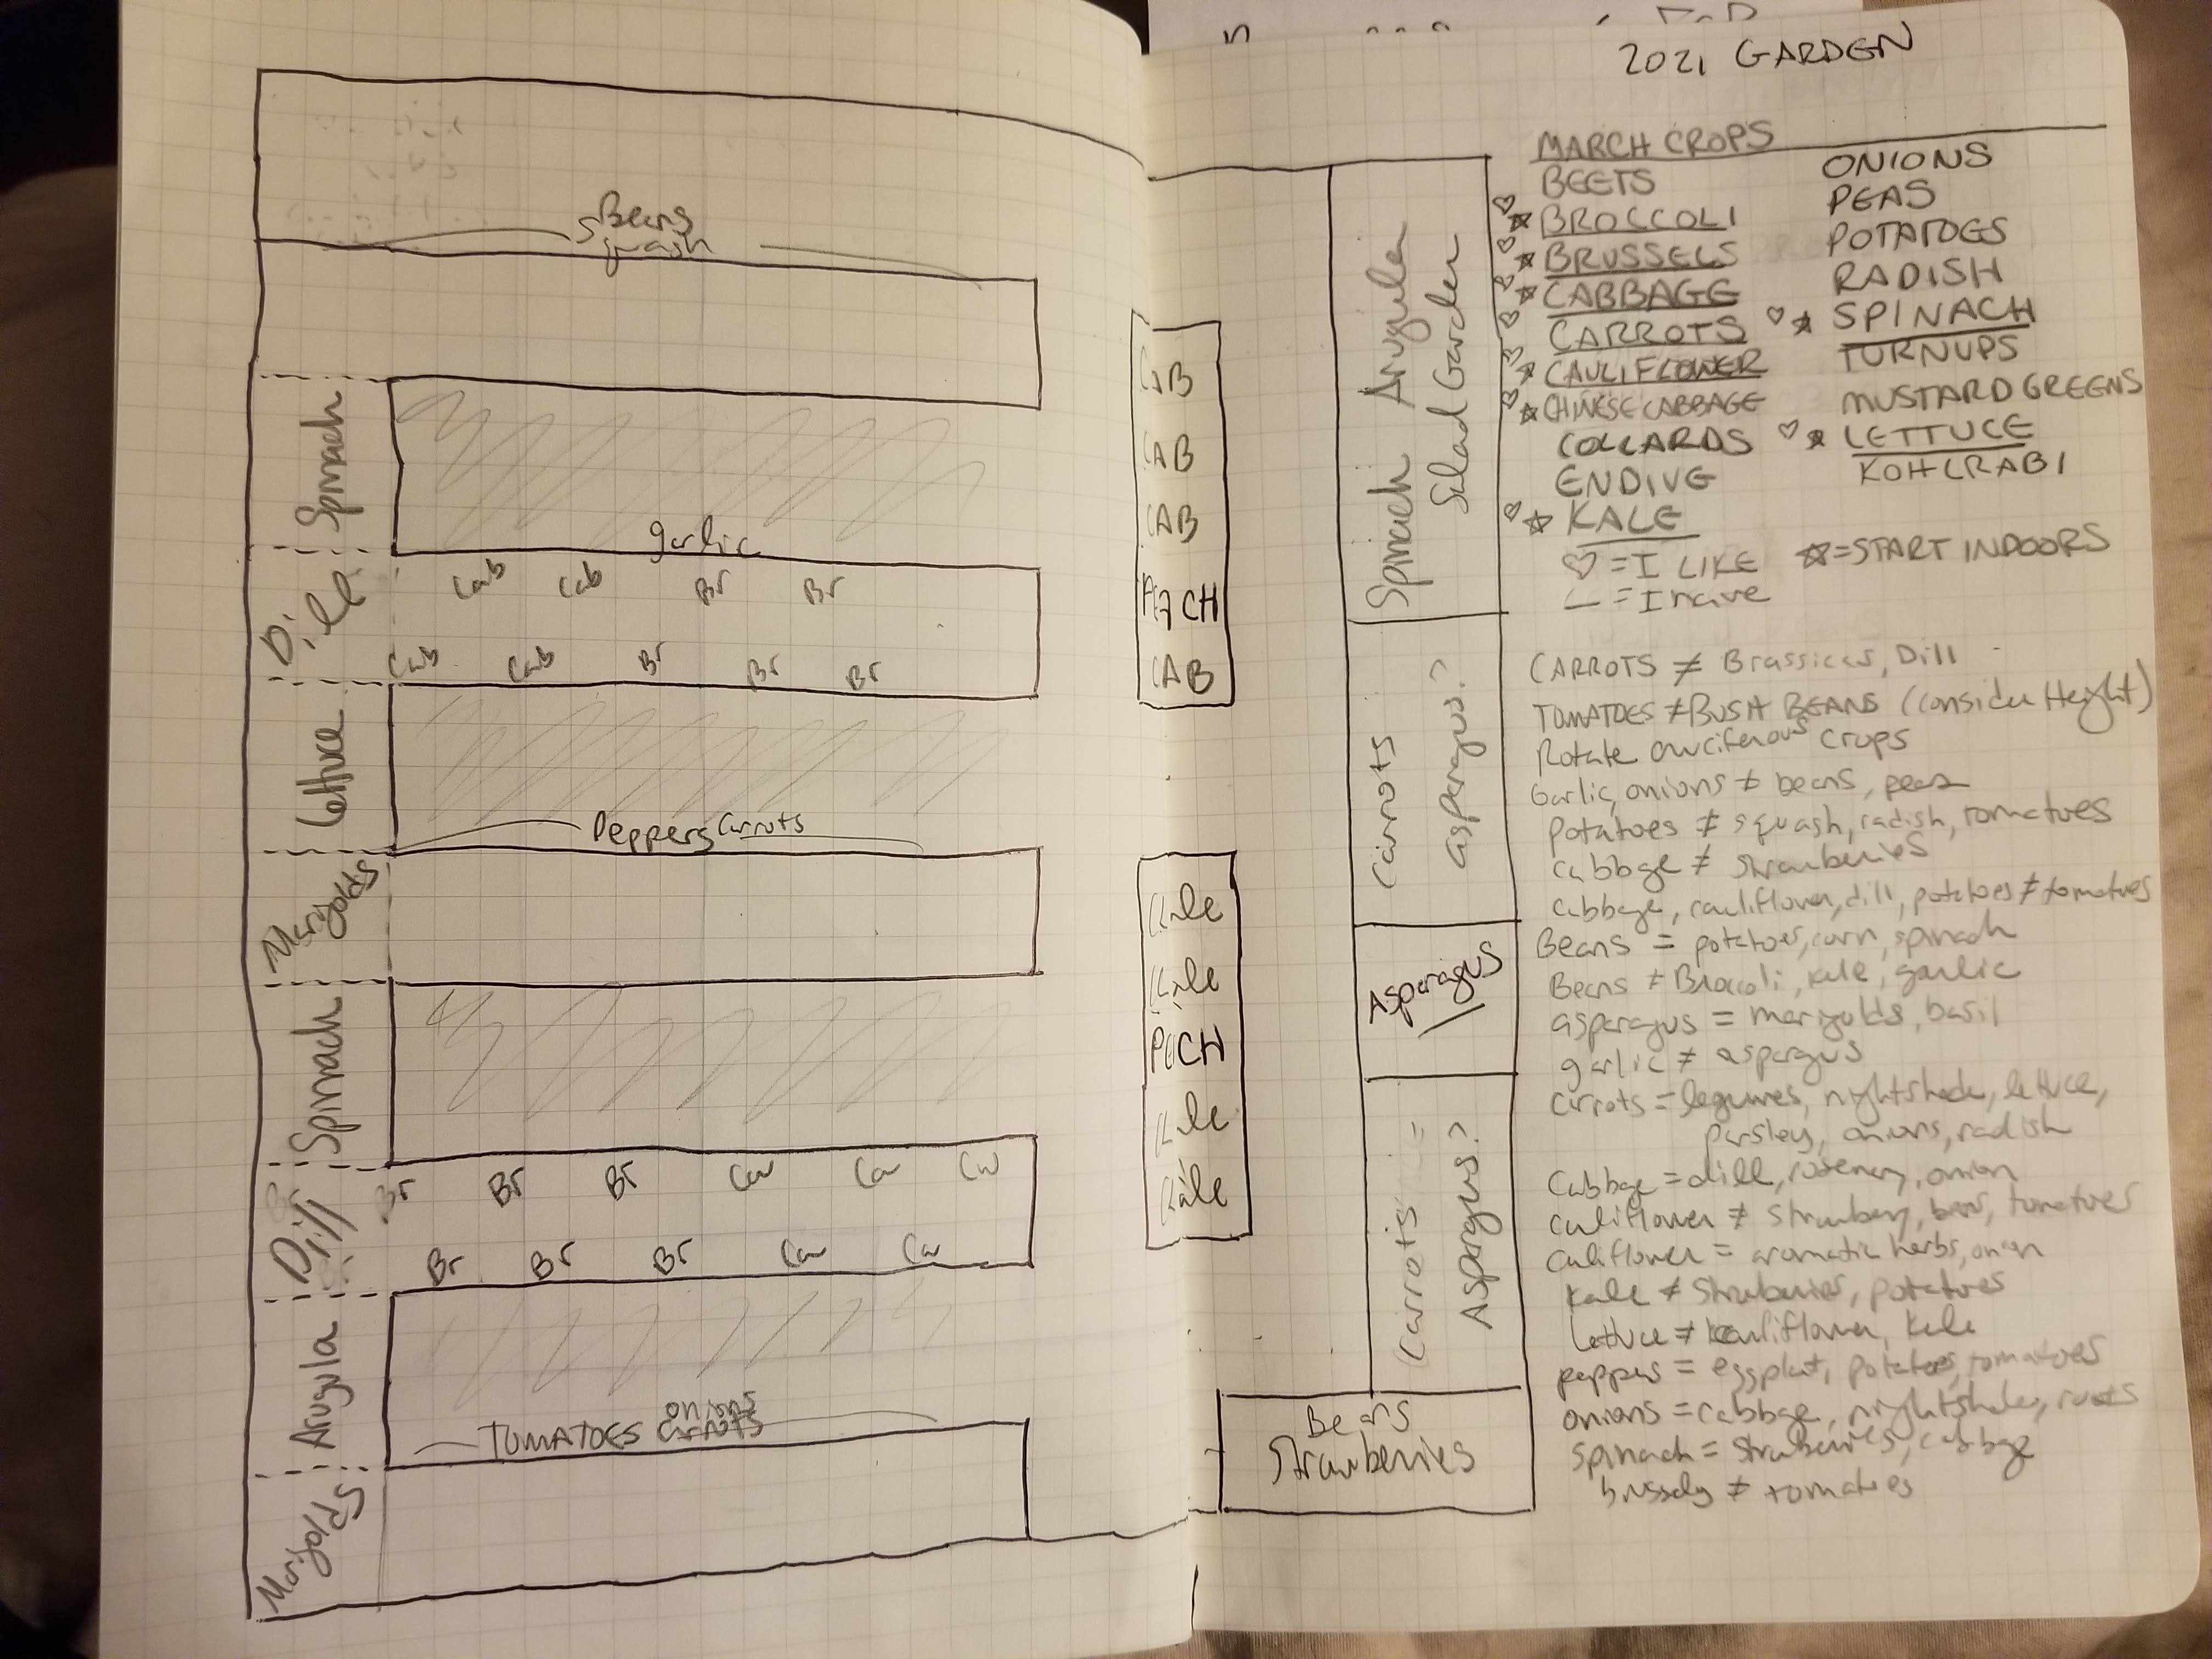 Beans
Squash
Spinach
garlic
Dill
Cab Cab Br Br
Cab Cab Br Br Br
Lettuce
Peppers Carrots
Marigolds
Spinach
Dill
Br Br Br Cau Cau Cau
Br Br Br Cau Cau
Arugula
onions
TOMATOES Carrots
Marigolds
CAB
CAB
CAB
PEACH
CAB
Kale
Kale
PECH
Kale
Kale
Spinach Arugula
Salad Garden
Carrots
asparagus?
Asparagus
Carrots
Asparagus?
Beans
Strawberries
2021 GARDEN
MARCH CROPS
BEETS
♡ ☆ BROCCOLI
♡ ☆ BRUSSELS
♡ ☆ CABBAGE
♡ CARROTS
♡ ☆ CAULIFLOWER
♡ ☆ CHINESE CABBAGE
COLLARDS
ENDIVE
♡ ☆ KALE
ONIONS
PEAS
POTATOES
RADISH
♡ ☆ SPINACH
TURNUPS
MUSTARD GREENS
♡ ☆ LETTUCE
KOHLRABI
♡ = I LIKE ☆ = START INDOORS
_ = I have
CARROTS ≠ Brassicas, Dill
TOMATOES ≠ BUSH BEANS (consider Height)
Rotate cruciferous crops
Garlic, onions ≠ beans, peas
potatoes ≠ squash, radish, tomatoes
cabbage ≠ strawberries
cabbage, cauliflower, dill, potatoes ≠ tomatoes
Beans = potatoes, corn, spinach
Beans ≠ Broccoli, kale, garlic
asparagus = marigolds, basil
garlic ≠ aspargus
carrots = legumes, nightshade, lettuce,
parsley, onions, radish
Cabbage = dill, rosemary, onion
Culiflower ≠ strawberry, bean, tomatoes
Culiflower = aromatic herbs, onion
Kale ≠ Strawberries, potatoes
lettuce ≠ cauliflower, kale
peppers = eggplant, potatoes, tomatoes
onions = cabbage, nightshade, roots
spinach = strawberries, cabbage
brussels ≠ tomatoes